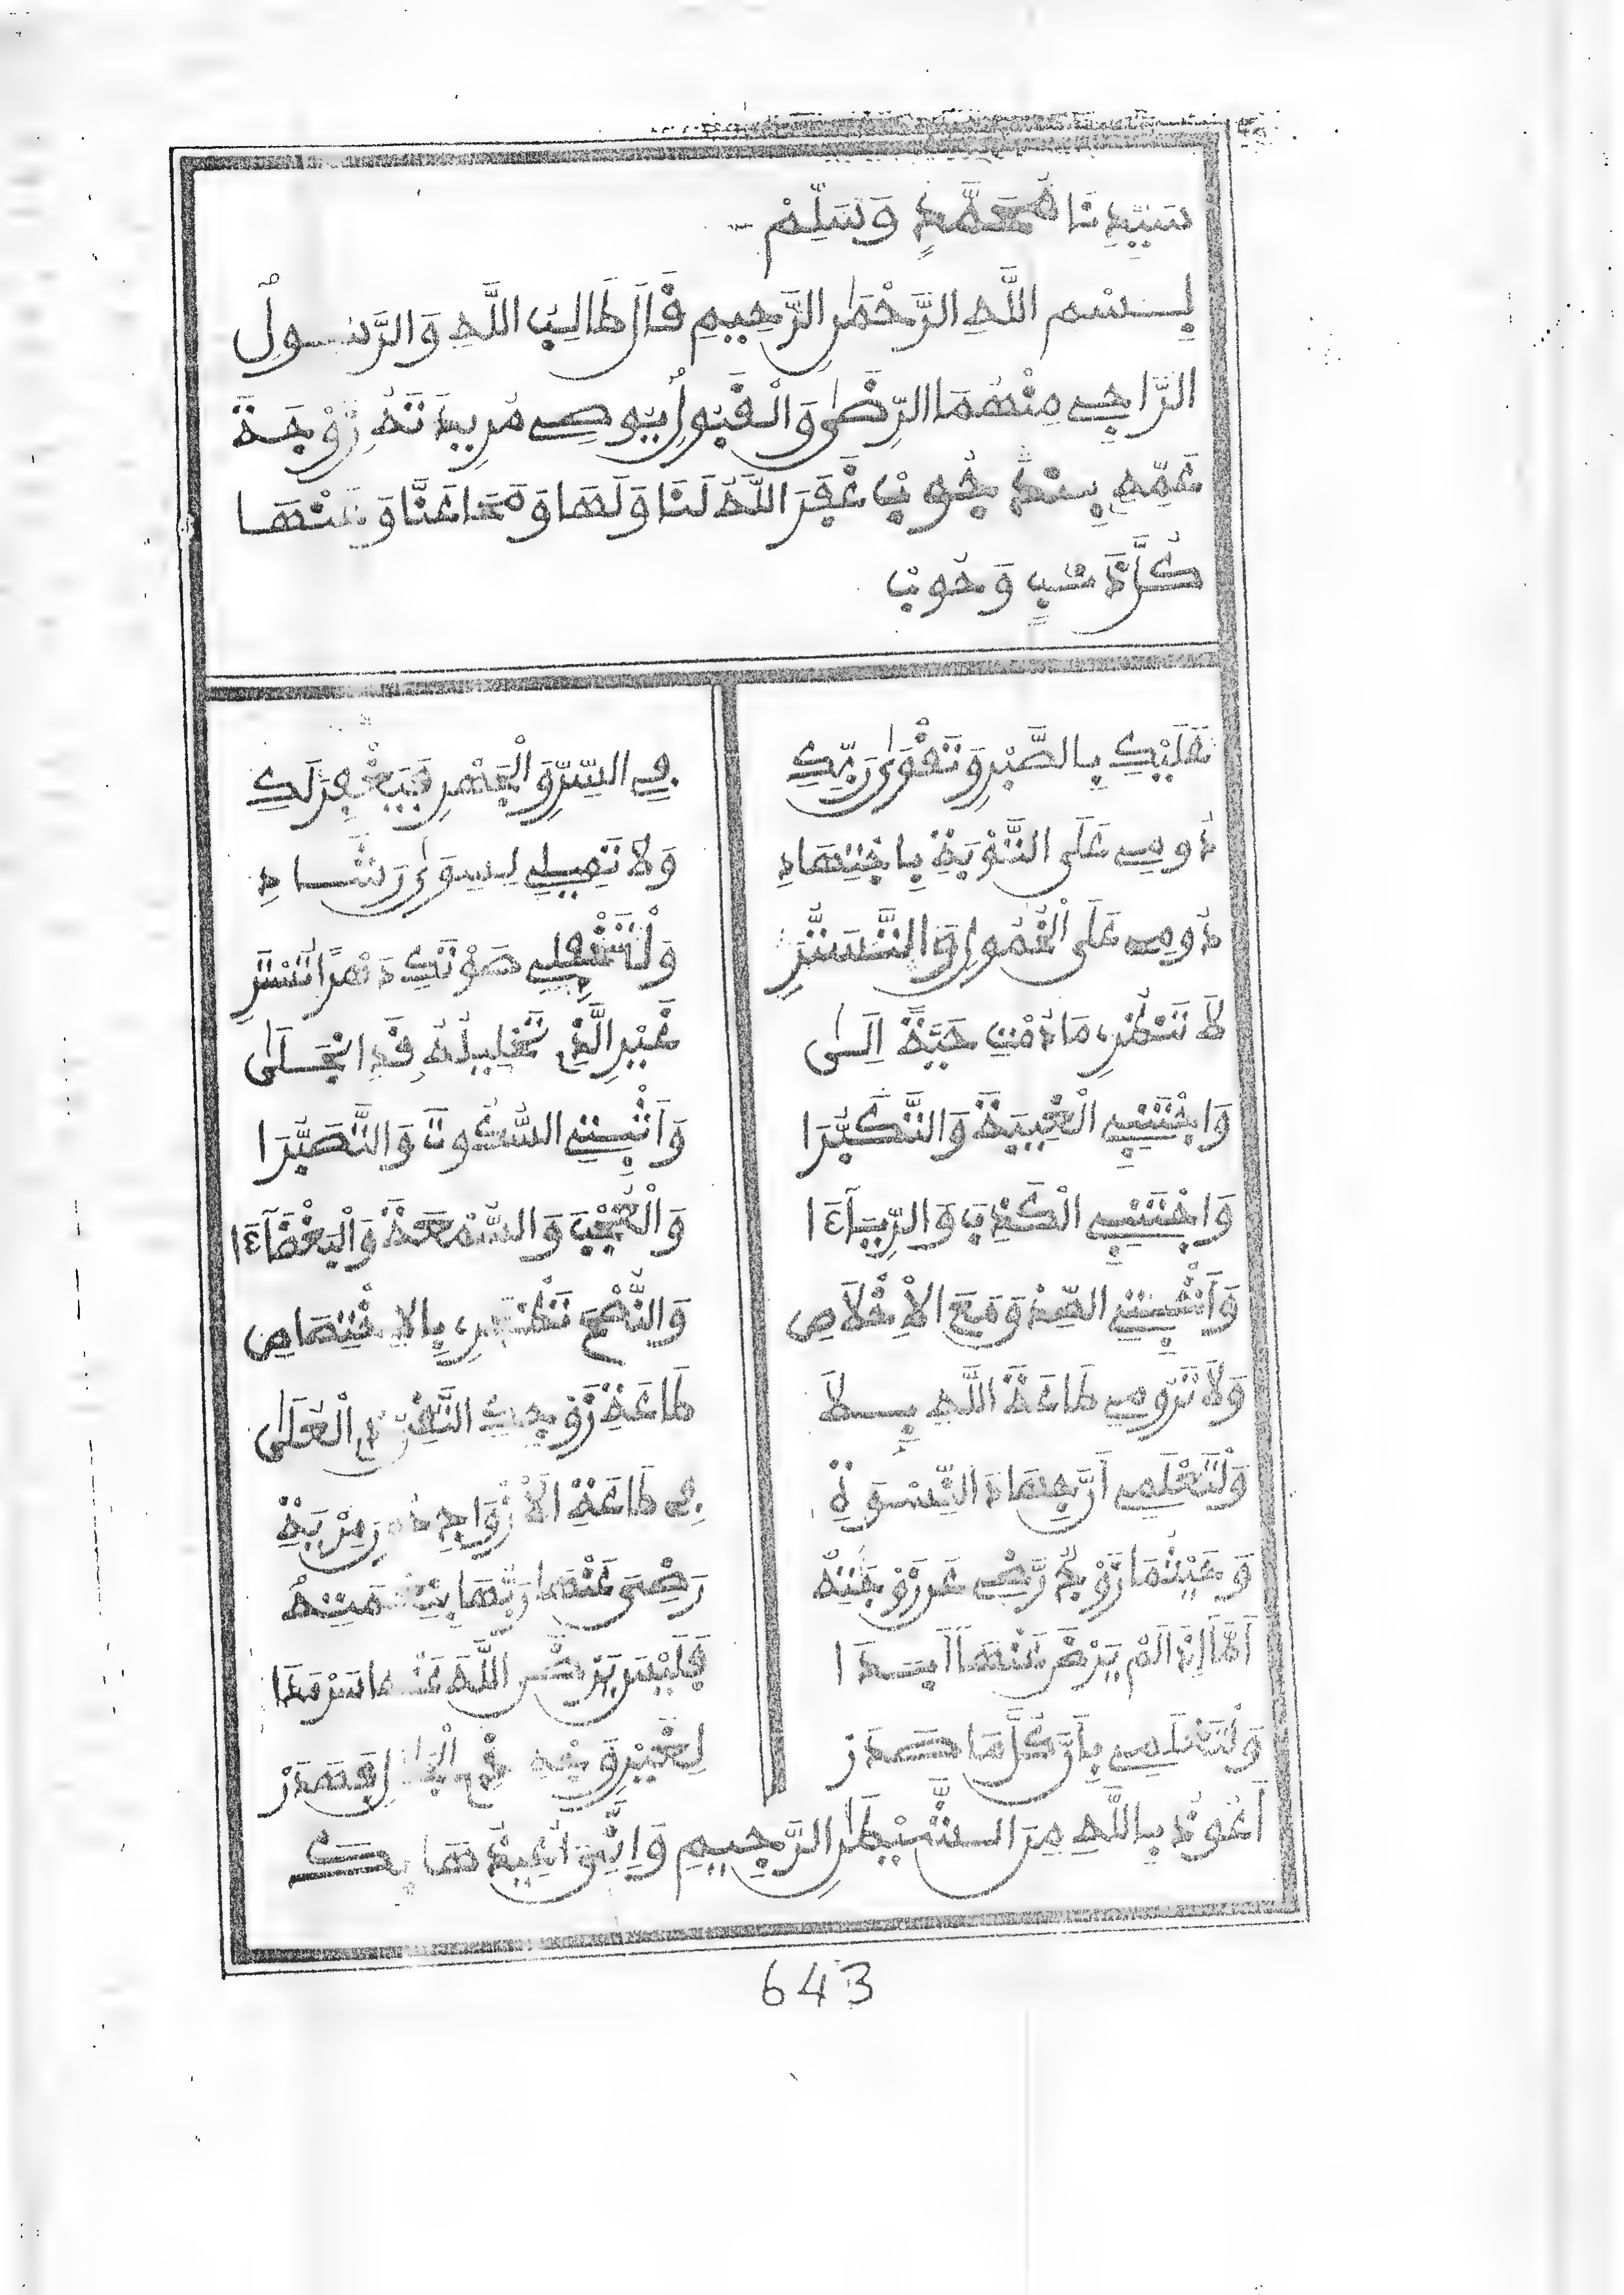 سَيِّدِنَا مُحَمَّدٍ وَسَلِّمْ
بِسْمِ اللَّهِ الرَّحْمَٰنِ الرَّحِيمِ قَالَ طَالِبُ اللَّهِ وَالرَّسُولِ
الرَّاجِي مِنْهُمَا الرِّضَىٰ وَالْقَبُولَ يُوصِي مُرِيدَتَهُ زَوْجَةَ
عَمِّهِ بِنْدَ جُوبْ غَفَرَ اللَّهُ لَنَا وَلَهَا وَمَحَا عَنَّا وَعَنْهَا
كُلَّ ذَنْبٍ وَحُوبْ
عَلَيْكِ بِالصَّبْرِ وَتَقْوَىٰ رَبِّكِ فِي السِّرِّ وَالْجَهْرِ فَيَغْفِرَ لَكِ
دُومِي عَلَى التَّوْبَةِ بِاجْتِهَادِ وَلَا تَمِيلِي لِسِوَىٰ رَشَادِ
دُومِي عَلَى الْخُمُولِ وَالتَّسَتُّرِ وَلْتَخْفِضِي صَوْتَكِ دَهْرًا تُسْتَرِ
لَا تَنْظُرِي مَا دُمْتِ حَيَّةً إِلَىٰ غَيْرِ الَّذِي تَحْلِيلُهُ قَدِ انْجَلَىٰ
وَاجْتَنِبِي الْغِيبَةَ وَالتَّكَبُّرَا وَأَثْبِتِي السُّكُوتَ وَالتَّصَبُّرَا
وَاجْتَنِبِي الْكَذِبَ وَالرِّيَاءَا وَالْعُجْبَ وَالسُّمْعَةَ وَالْبَغْضَاءَا
وَأَثْبِتِي الصِّدْقَ مَعَ الْإِخْلَاصِ وَالنُّصْحَ تَظْفَرِي بِالِاخْتِصَاصِ
وَلَا تَرُومِي طَاعَةَ اللَّهِ بِلَا طَاعَةِ زَوْجِكِ التَّقِيِّ ذِي الْعُلَىٰ
وَلْتَعْلَمِي أَنَّ جِهَادَ النِّسْوَةِ فِي طَاعَةِ الْأَزْوَاجِ دُونَ مِرْيَةِ
وَحَيْثُمَا زَوْجٌ رَضِي عَنْ زَوْجَتِهْ رَضِيَ عَنْهَا رَبُّهَا بِنِعْمَتِهْ
أَمَّا إِذَا لَمْ يَرْضَ عَنْهَا أَبَدَا فَلَيْسَ يَرْضَى اللَّهُ عَنْهَا سَرْمَدَا
وَلْتَعْلَمِي بِأَنَّ كُلَّمَا صَدَرْ لِغَيْرِ وَجْهِ
أَعُوذُ بِاللَّهِ مِنَ الشَّيْطَٰنِ الرَّجِيمِ وَإِنِّيَ أُعِيذُهَا بِكَ
643